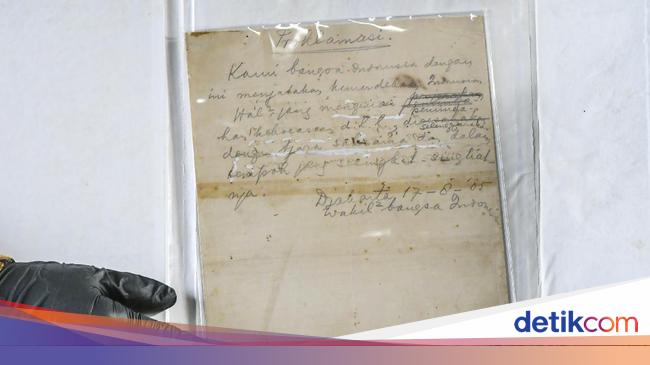 Proklamasi.
Kami bangsa Indonesia dengan
ini menjatakan kemerdekaan Indonesia
Hal² jang mengenai
kekoeasaan d.l.l.,
dengan tjara saksama dan dalam
tempoh jang sesingkat-singkat
nja.
Djakarta 17-8-'05
Wakil² bangsa Indon
detikcom